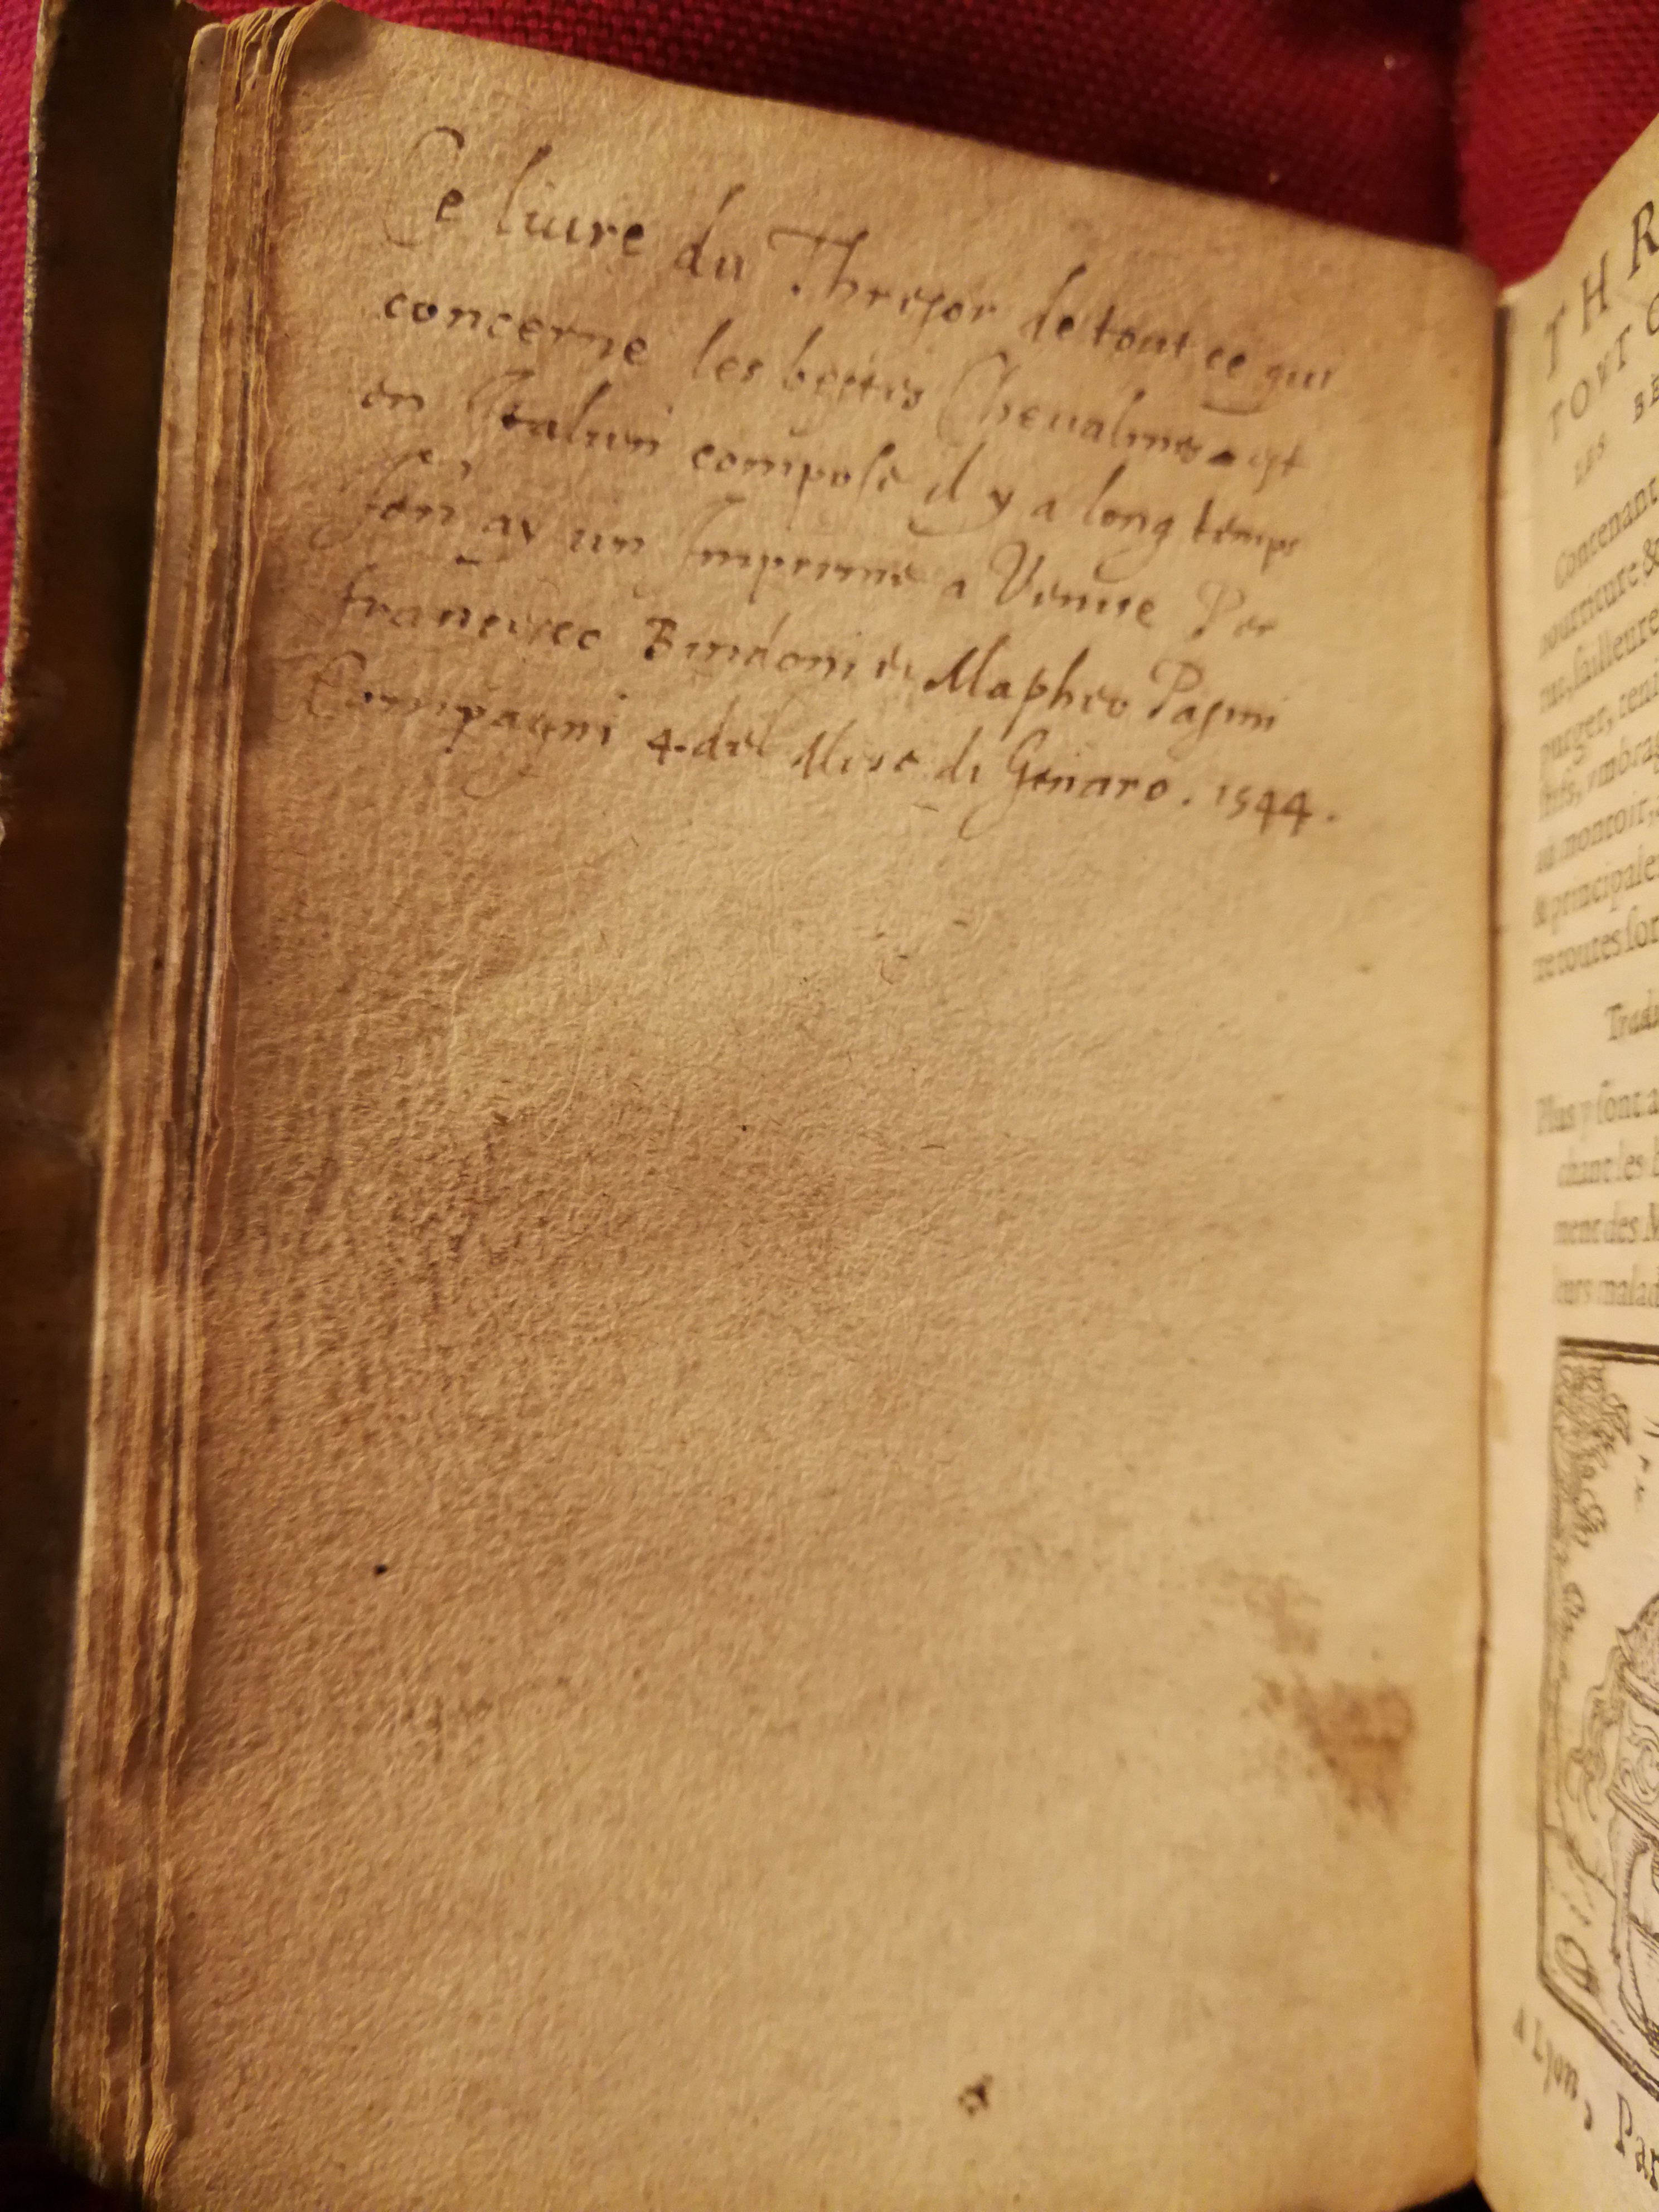 Ce liure du Thresor de tout ce qui
concerne les bestes Cheualines est
en Italien compose il y a long temps
J'en ay un Imprime a Venise Per
francisco Bindoni et Mapheo Pasini
Compagni 4. del Mese di Genaro. 1544.
THR
TOVT C
LES BE
Contenant
nourriture &
purger, teni
tifs, vmbrag
au montoir,
& principale
re toutes sor
Tradu
Plus y sont a
chant les
ment des M
leurs malad
A Lyon, Par